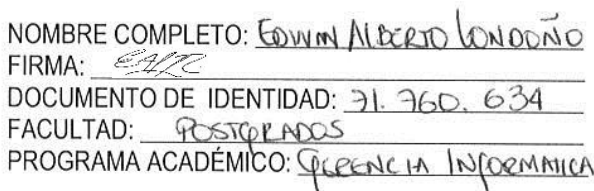 NOMBRE COMPLETO: EDWIN ALBERTO LONDOÑO
FIRMA:
DOCUMENTO DE IDENTIDAD: 71.760.634
FACULTAD: POSTGRADOS
PROGRAMA ACADÉMICO: GERENCIA INFORMATICA